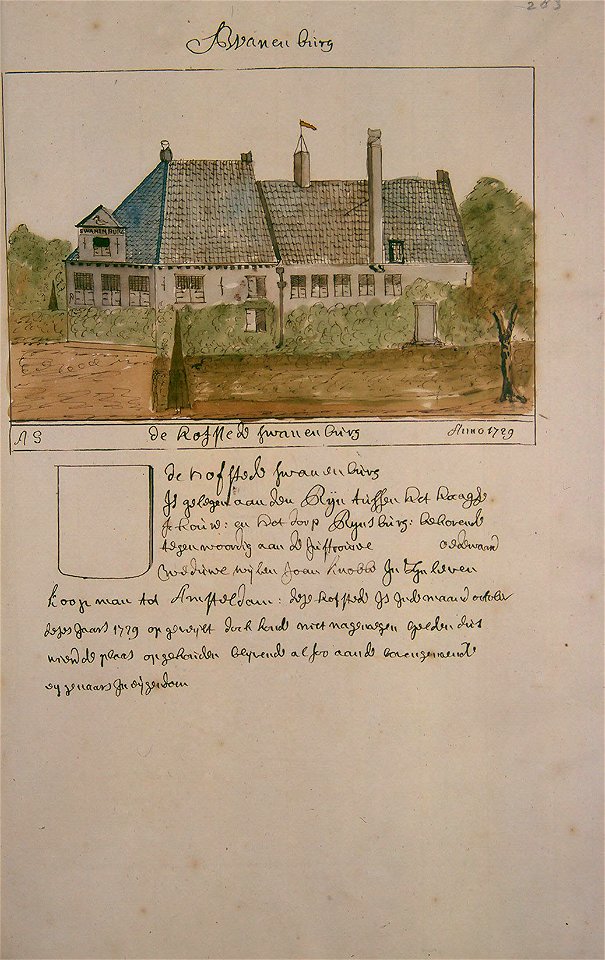 283
Swanenburg
SWANENBURG
AS de hofstede swanenburg Anno 1729
de hofstede swanenburg
Is gelegen aan den Rijn tussen het haagse
schouw: en het dorp Rynsburg: behorende
tegenwoordig aan de Juffrouwe
weduwe wijlen Joan knobbe In zijn leven
koopman tot Amsteldam: deze hofstede Is In de maand october
dezes Jaars 1729 op geveijlt doch konde niet na gelden dus
wierd de plaats opgehouden blijvende alsoo aan de
eijgenaars In eijgendom